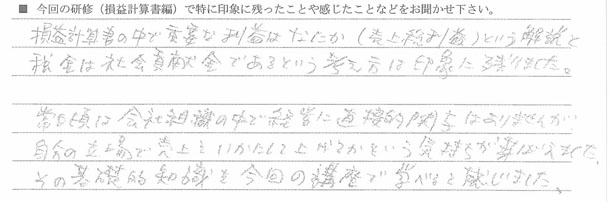 ■ 今回の研修（損益計算書編）で特に印象に残ったことや感じたことなどをお聞かせ下さい。
損益計算書の中で重要な利益はなにか（売上総利益）という解説と
税金は社会貢献金であるという考え方は印象に残りました。
常日頃は会社組織の中で経営に直接的関与はありませんが
自分の立場で売上をいかにして上げるかという気持ちが芽ばえました
その基礎的知識を今回の講座で学べると感じました。